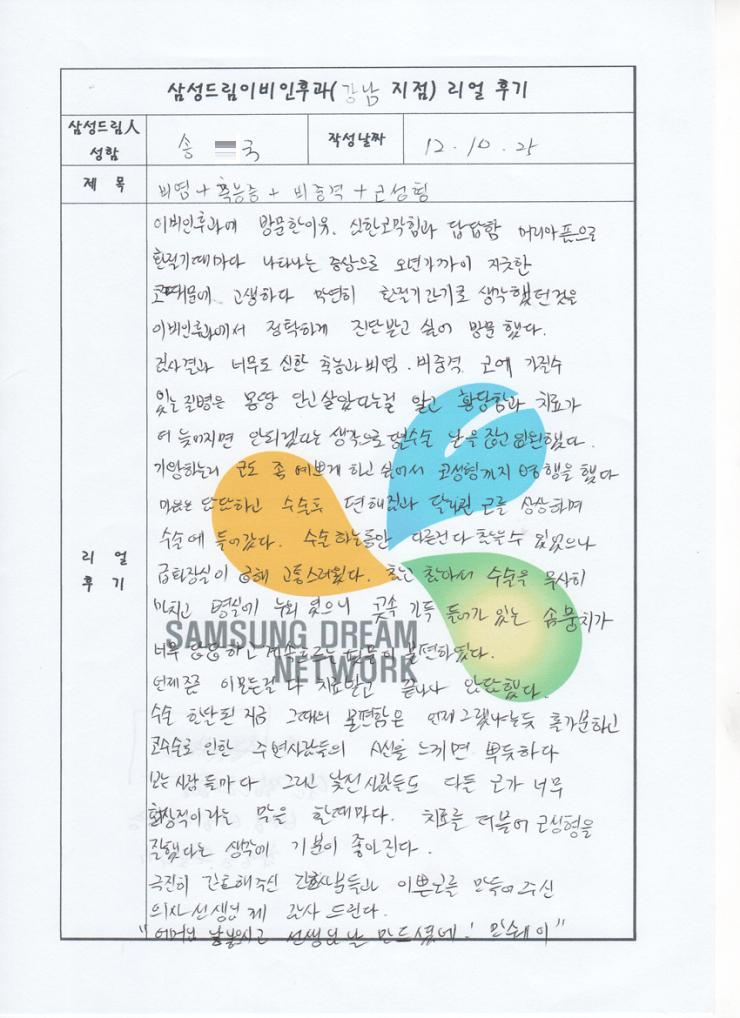 삼성드림이비인후과(강남 지점) 리얼 후기
삼성드림人
성함
송 국
작성날짜
12. 10. 25
제 목
비염 + 축농증 + 비중격 + 코성형
리 얼
후 기
이비인후과에 방문한이유. 심한코막힘과 답답함 머리아픔으로
환절기때마다 나타나는 증상으로 오년가까이 지긋한
코때문에 고생하다 막연히 환절기감기로 생각했던것은
이비인후과에서 정확하게 진단받고 싶어 방문했다.
검사결과 너무도 심한 축농과 비염. 비중격 코에 가질수
있는 질병은 몽땅 안고살았다는걸 알고 황당함과 치료가
더 늦어지면 안되겠다는 생각으로 수술 날을 잡고 입원했다.
기왕하는거 코도 좀 예쁘게 하고 싶어서 코성형까지 병행을 했다
마음은 단단하고 수술후 편해짐과 달라진 코를 상상하며
수술에 들어갔다. 수술하는동안 다른건다 참을수 있었으나
급화장실이 급해 고통스러웠다. 참고 참아서 수술을 무사히
마치고 병실에 누워 있으니 콧속 가득 들어가 있는 솜뭉치가
너무 답답하고 계속흐르는 핏물이 불편하였다.
언제쯤 이모든걸 다 치료받고 끝나나 답답했다.
수술 한달된 지금 그때의 불편함은 언제그랬냐는듯 홀가분하고
코수술로 인한 주변사람들의 시선을 느끼면 뿌듯하다
보는사람들마다 그리고 낯선사람들도 다들 코가 너무
환상적이라는 말은 할때마다. 치료를 더불어 코성형을
잘했다는 생각에 기분이 좋아진다.
극진히 간호해주신 간호사분들과 이쁜코를 만들어주신
의사선생님께 감사 드린다.
"어머님 날낳으시고 선생님 날 만드셨네! 만쉐이"
SAMSUNG DREAM
NETWORK